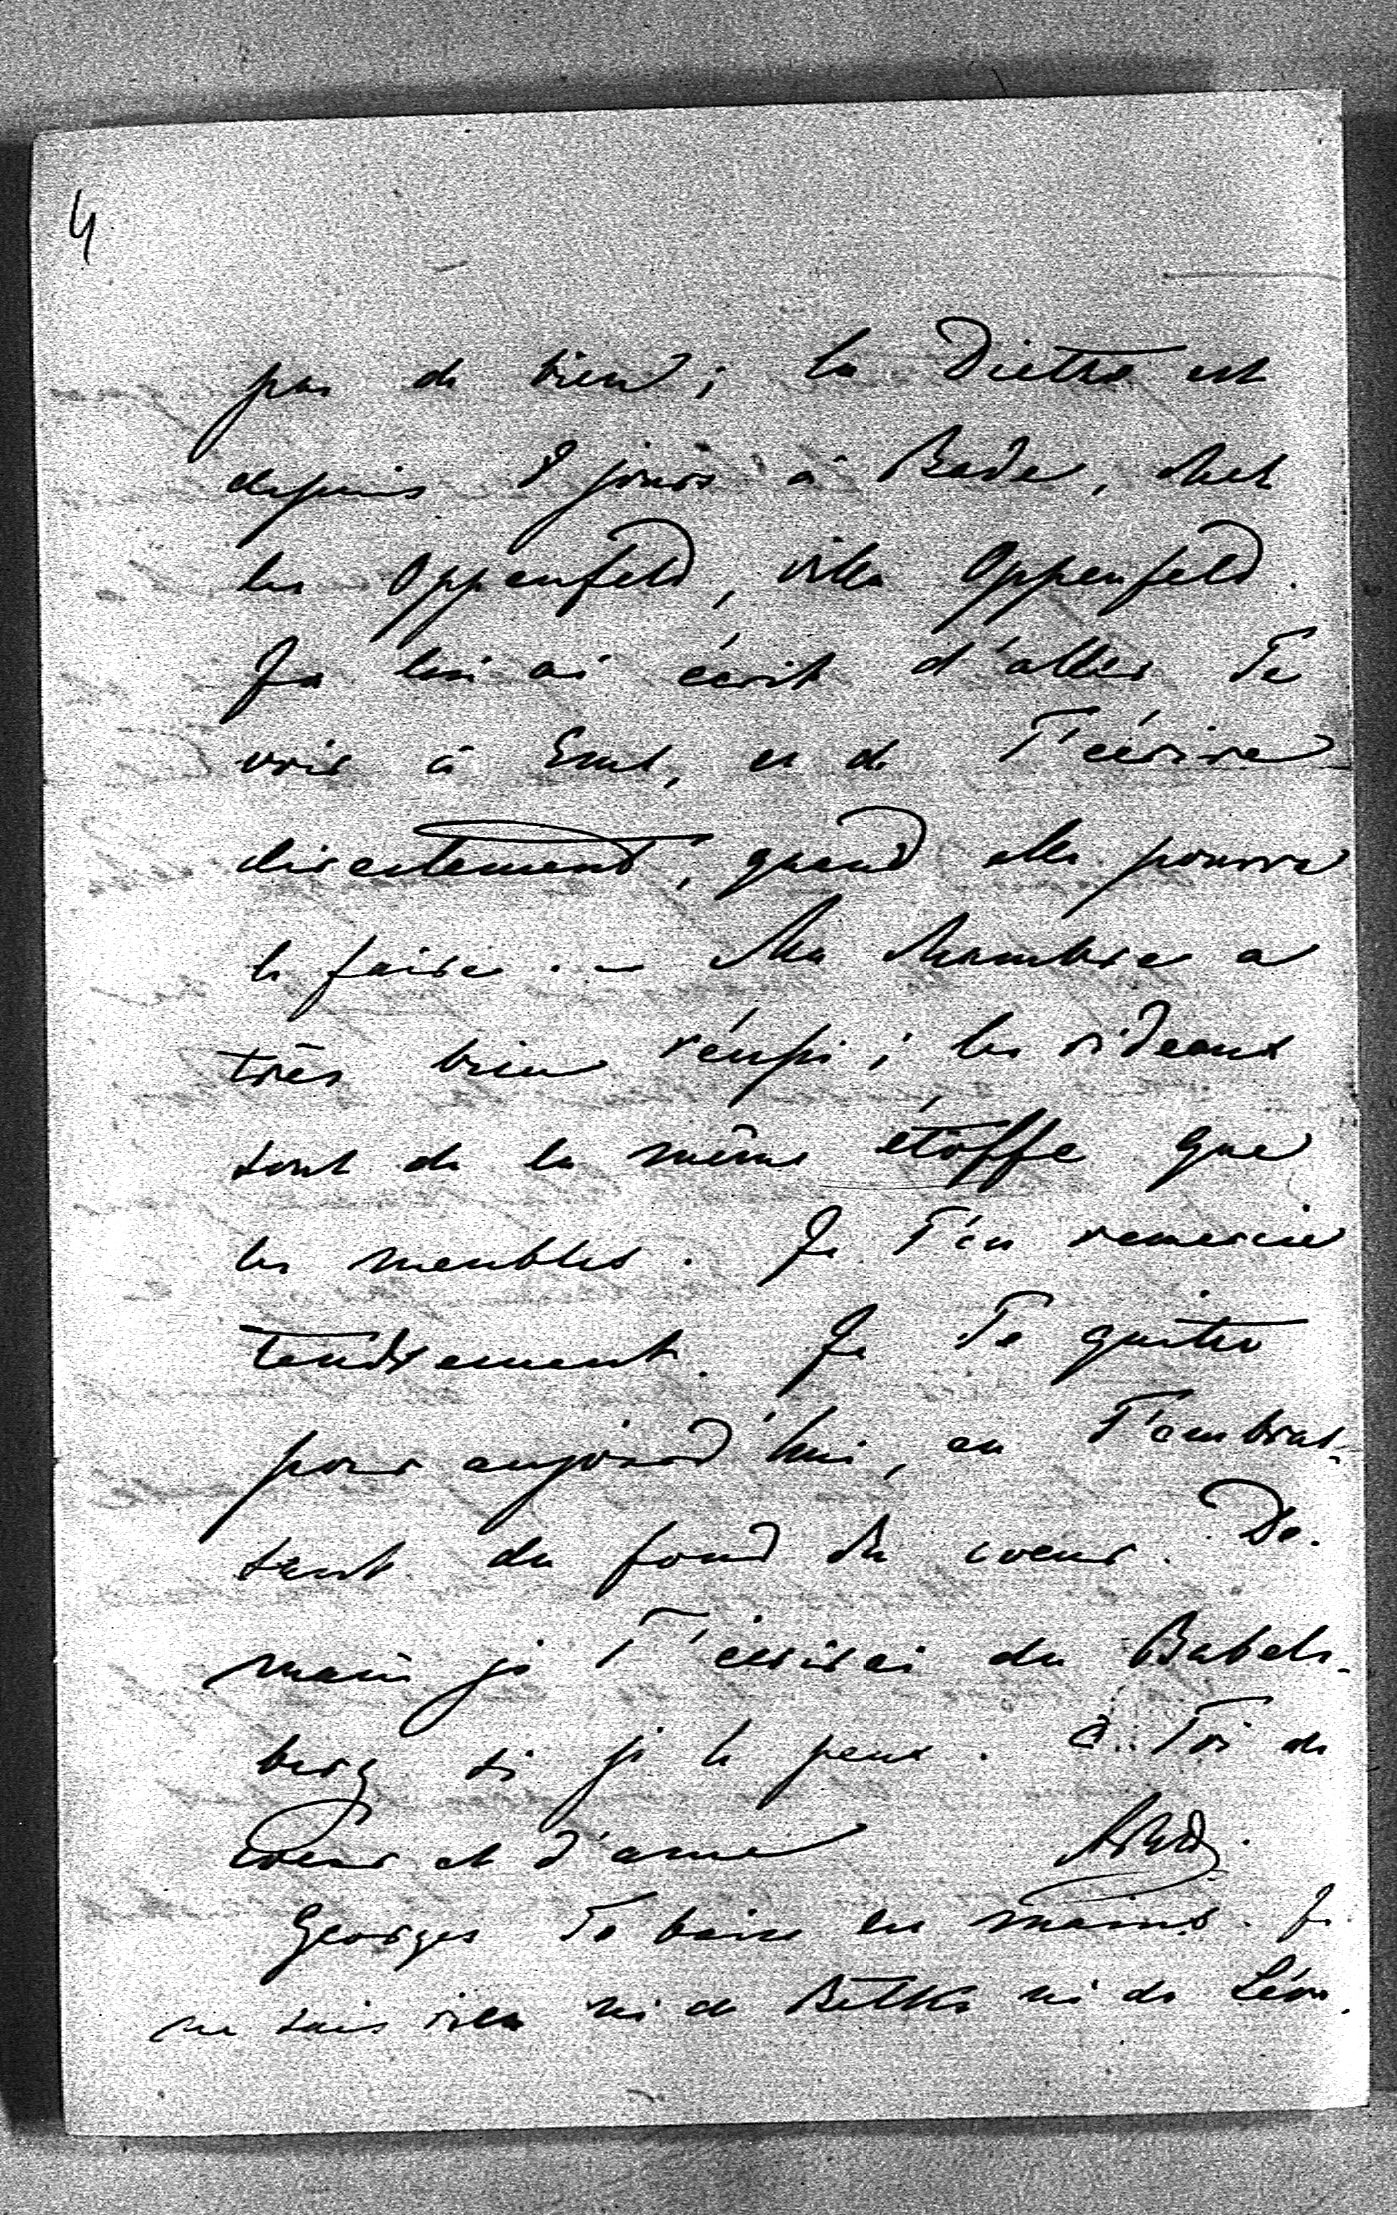 4
pas de bien; la Dietro est
depuis 8 jours à Bade, chez
les Oppenfeld, villa Oppenfeld.
Je lui ai écrit d'aller Te
voir à Ems, et de T'écrire
directement, quand elle pourra
le faire. – Ma chambre a
très bien réussi; les rideaux
sont de la même étoffe que
les meubles. Je T'en remercie
tendrement. Je Te quitte
pour aujourd'hui, en T'embras-
sant du fond du coeur. De-
main je T'écrirai du Babels-
berg si je le peux. à Toi de
coeur et d'ame
Georges Te baise les mains. Je
ne sais rien ni de Betka ni de Léon.